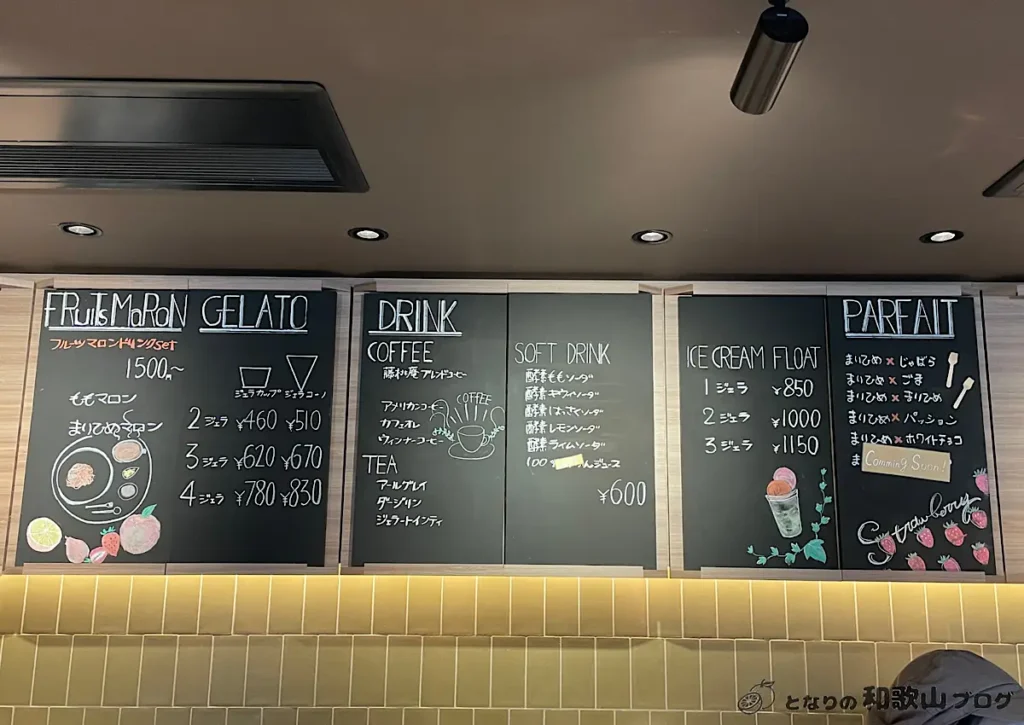 FRuits MaRoN
フルーツマロンドリンクset
1500円〜
ももマロン
まりひめマロン
GELATO
ジェラカップ ジェラコーン
2ジェラ ¥460 ¥510
3ジェラ ¥620 ¥670
4ジェラ ¥780 ¥830
DRINK
COFFEE
藤村庵ブレンドコーヒー
アメリカンコーヒー
カフェオレ
ウィンナーコーヒー
COFFEE
TEA
アールグレイ
ダージリン
ジェラートインティ
SOFT DRINK
酵素ももソーダ
酵素キウイソーダ
酵素はっさくソーダ
酵素レモンソーダ
酵素ライムソーダ
100 んジュース
¥600
ICE CREAM FLOAT
1ジェラ ¥850
2ジェラ ¥1000
3ジェラ ¥1150
PARFAIT
まりひめ×じゃばら
まりひめ×ごま
まりひめ×まりひめ
まりひめ×パッション
まりひめ×ホワイトチョコ
ま
Comming Suun!
Strawberry
となりの和歌山ブログ